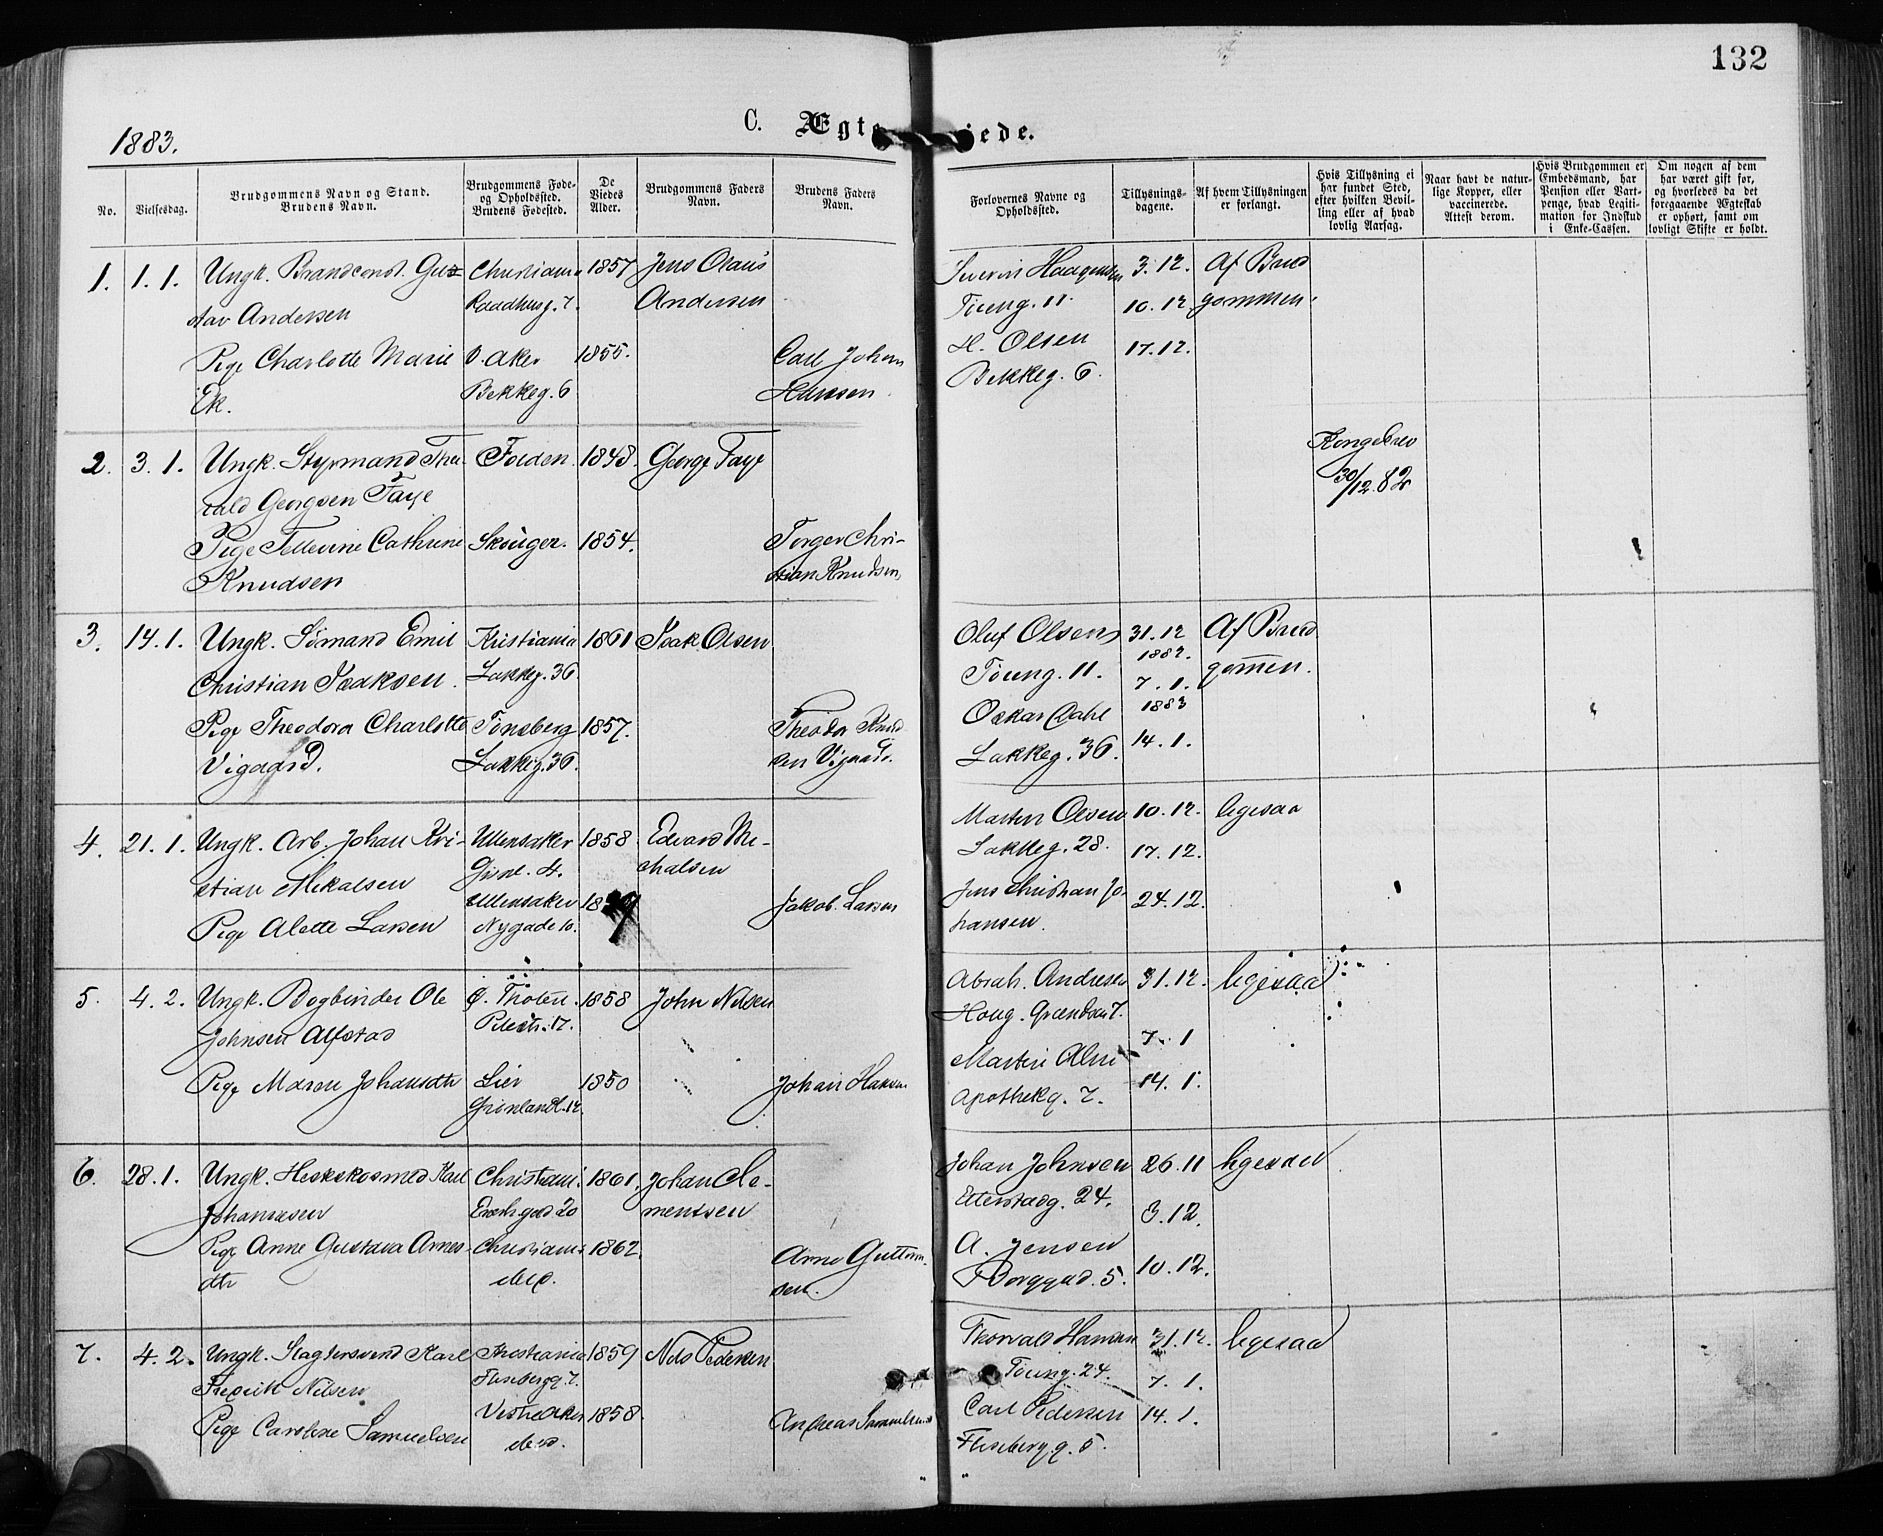 132
1883.
C. Ægte
iede.
No.
Vielsesdag.
Brudgommens Navn og Stand.
Brudens Navn.
Brudgommens Føde-
og Opholdssted.
Brudens Fødested.
De
Viedes
Alder.
Brudgommens Faders
Navn.
Brudens Faders
Navn.
Forlovernes Navne og
Opholdssted.
Tillysnings-
dagene.
Af hvem Tillysningen
er forlangt.
Hvis Tillysning ei
har fundet Sted,
efter hvilken Bevil-
ling eller af hvad
lovlig Aarsag.
Naar havt de natur-
lige Kopper, eller
vaccinerede.
Attest derom.
Hvis Brudgommen er
Embedsmand, har
Pension eller Vart-
penge, hvad Legiti-
mation for Indskud
i Enke-Cassen.
Om nogen af dem
har været gift før,
og hvorledes da det
foregaaende Ægteskab
er ophørt, samt om
lovligt Skifte er holdt.
1. 1. 1.
Ungk. Brandconst. Gus-
tav Andersen
Christiania
Raadhusg. 7.
1857
Jens Olaus
Andersen
Pige Charlotte Marie
Ek.
Ø. Aker
Bekkeg. 6
1855.
Carl Johan
Hansen
Severin Haagensen
Tøieng. 11.
H. Olsen
Bekkeg. 6.
3.12.
10.12
17.12.
Af Brud
gommen.
2. 3. 1.
Ungk. Styrmand Tho-
rald Georgsen Faye
Folden.
1848.
George Faye
Pige Tellerine Cathrine
Knudsen
Skouger.
1854.
Torger Chri-
stian Knudsen
Kongebrev
30/12.82
3. 14.1.
Ungk. Sømand Emil
Christian Isaksen
Kristiania
Lakkeg. 36
1861
Isak Olsen
Pige Theodora Charlotte
Vigaard.
Tønsberg
Lakkeg. 36.
1857.
Theodor Knud
sen Vigaard.
Oluf Olsen
Tøieng. 11.
Oskar Dahl
Lakkeg. 36.
31.12
1882.
7.1.
1883
14.1.
Af Brud
gommen.
4. 21.1.
Ungk. Arb. Johan Kri-
stian Mikalsen
Ullensaker
Grønl. 4.
1858
Edvard Mi-
chalsen
Pige Alette Larsen
Ullensaker
Nygade 10.
Jakob Larsen
Martin Olsen
Lakkeg. 28.
Jens Christian Jo-
hansen.
10.12.
17.12.
24.12.
ligesaa
5. 4. 2.
Ungk. Bogbinder Ole
Johnsen Alfstad
Ø. Thoten.
Pilestr. 17.
1858
John Nilsen
Pige Maren Johansdtr
Lier
Grønland. 12
1850
Johan Hansen
Abrah. Andresen
Houg. Grændsen 7.
Martin Alm
Apothekg. 7.
31.12.
7.1
14.1.
ligesaa
6. 28.1.
Ungk. Karl
Johannesen
Christiania
20
1861.
Johan Cle-
mentsen
Pige Anne Gustava Arnes-
dtr
Christiania
ibid.
1862.
Arne Guttorm-
sen.
Johan Johnsen
Etterstadg. 24.
A. Jensen
Borggad. 5.
26.11
3.12.
10.12.
ligesaa
7. 4. 2.
Ungk. Slagtersvend Karl
Fredrik Nilsen
Christiania
Flisbergg. 7.
1859
Nils Pedersen
Pige Caroline Samuelsen
Vestre Aker
ibid.
1858.
Andreas Samuelsen
Thorvald Hansen
Tøieng. 24.
Carl Pedersen
Flisbergg. 5.
31.12.
7.1.
14.1.
ligesaa